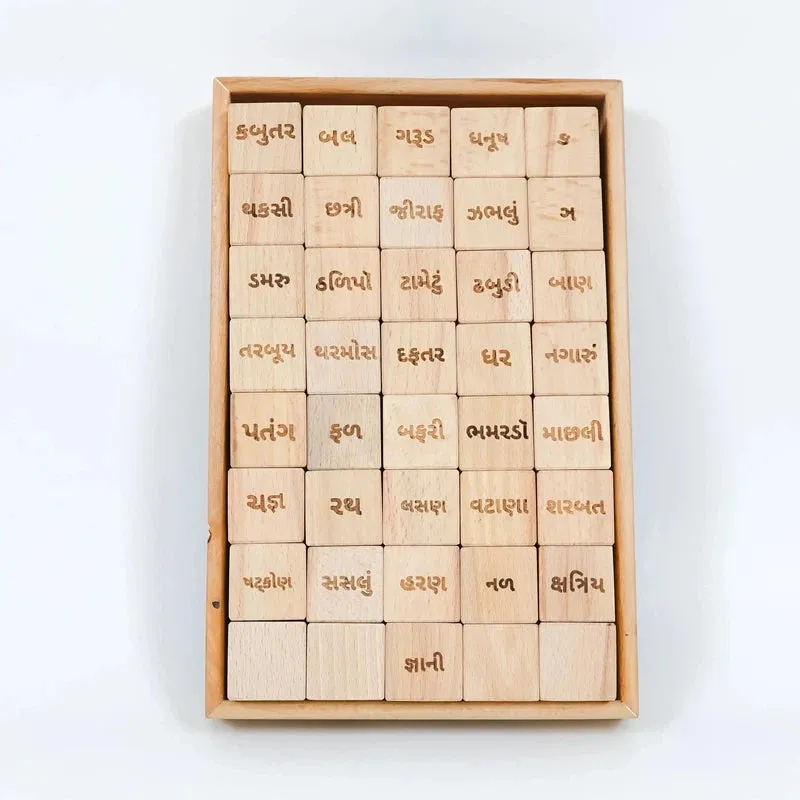 કબુતર બલ ગરૂડ ધનૂષ ક
થકસી છત્રી જીરાફ ઝભલું ઞ
ડમરુ ઠળિપો ટામેટું ઢબુડી બાણ
તરબૂય થરમોસ દફતર ઘર નગારું
પતંગ ફળ બફરી ભમરડો માછલી
ચજ્ઞ રથ લસણ વટાણા શરબત
ષટ્કોણ સસલું હરણ નળ ક્ષત્રિય
જ્ઞાની